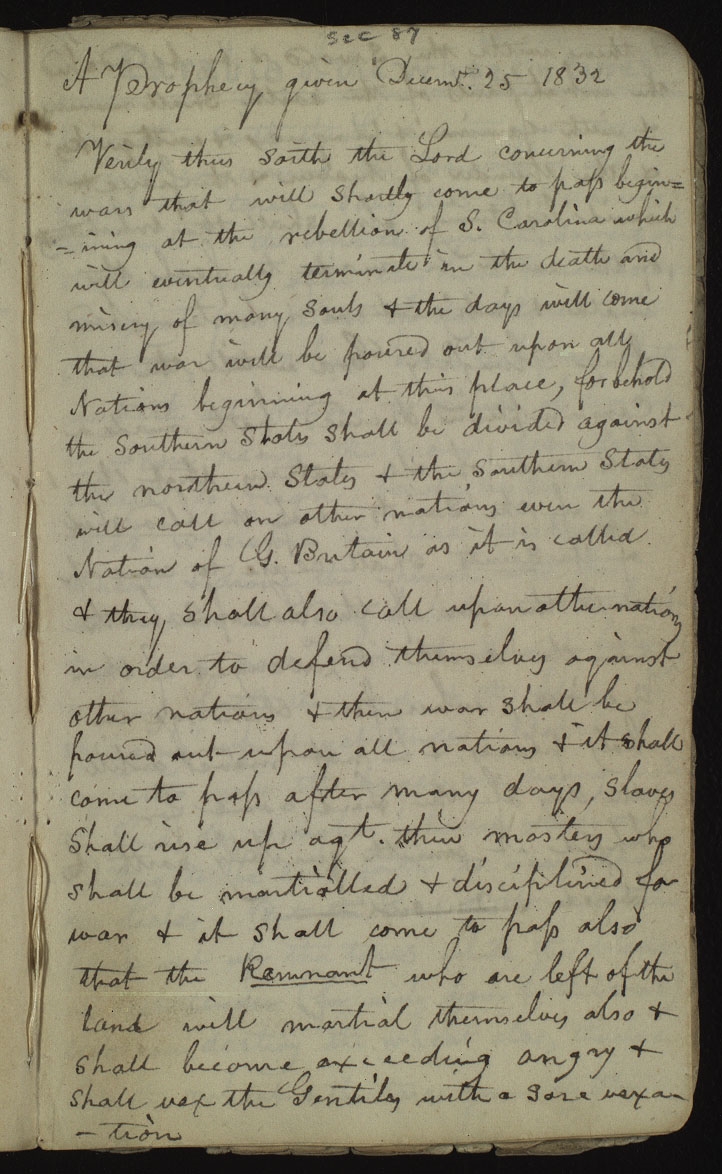 Sec 87
A Prophecy given Decemr. 25 1832
Verily thus saith the Lord concerning the
wars that will shortly come to pass begin=
=ining at the rebellion of S. Carolina which
will eventually terminate in the death and
misery of many souls & the days will come
that war will be poured out upon all
Nations beginning at this place, for behold
the Southern States shall be divided against
the northern States & the Southern States
will call on other nations even the
Nation of G. Britain as it is called
& they shall also call upon other nations
in order to defend themselves against
other nations & then war shall be
poured out upon all nations & it shall
come to pass after many days, slaves
shall rise up agt. their masters who
shall be martialled & disciplined for
war & it shall come to pass also
that the Remnant who are left of the
land will martial themselves also &
shall become exceeding angry &
shall vex the Gentiles with a sore vexa-
-tion